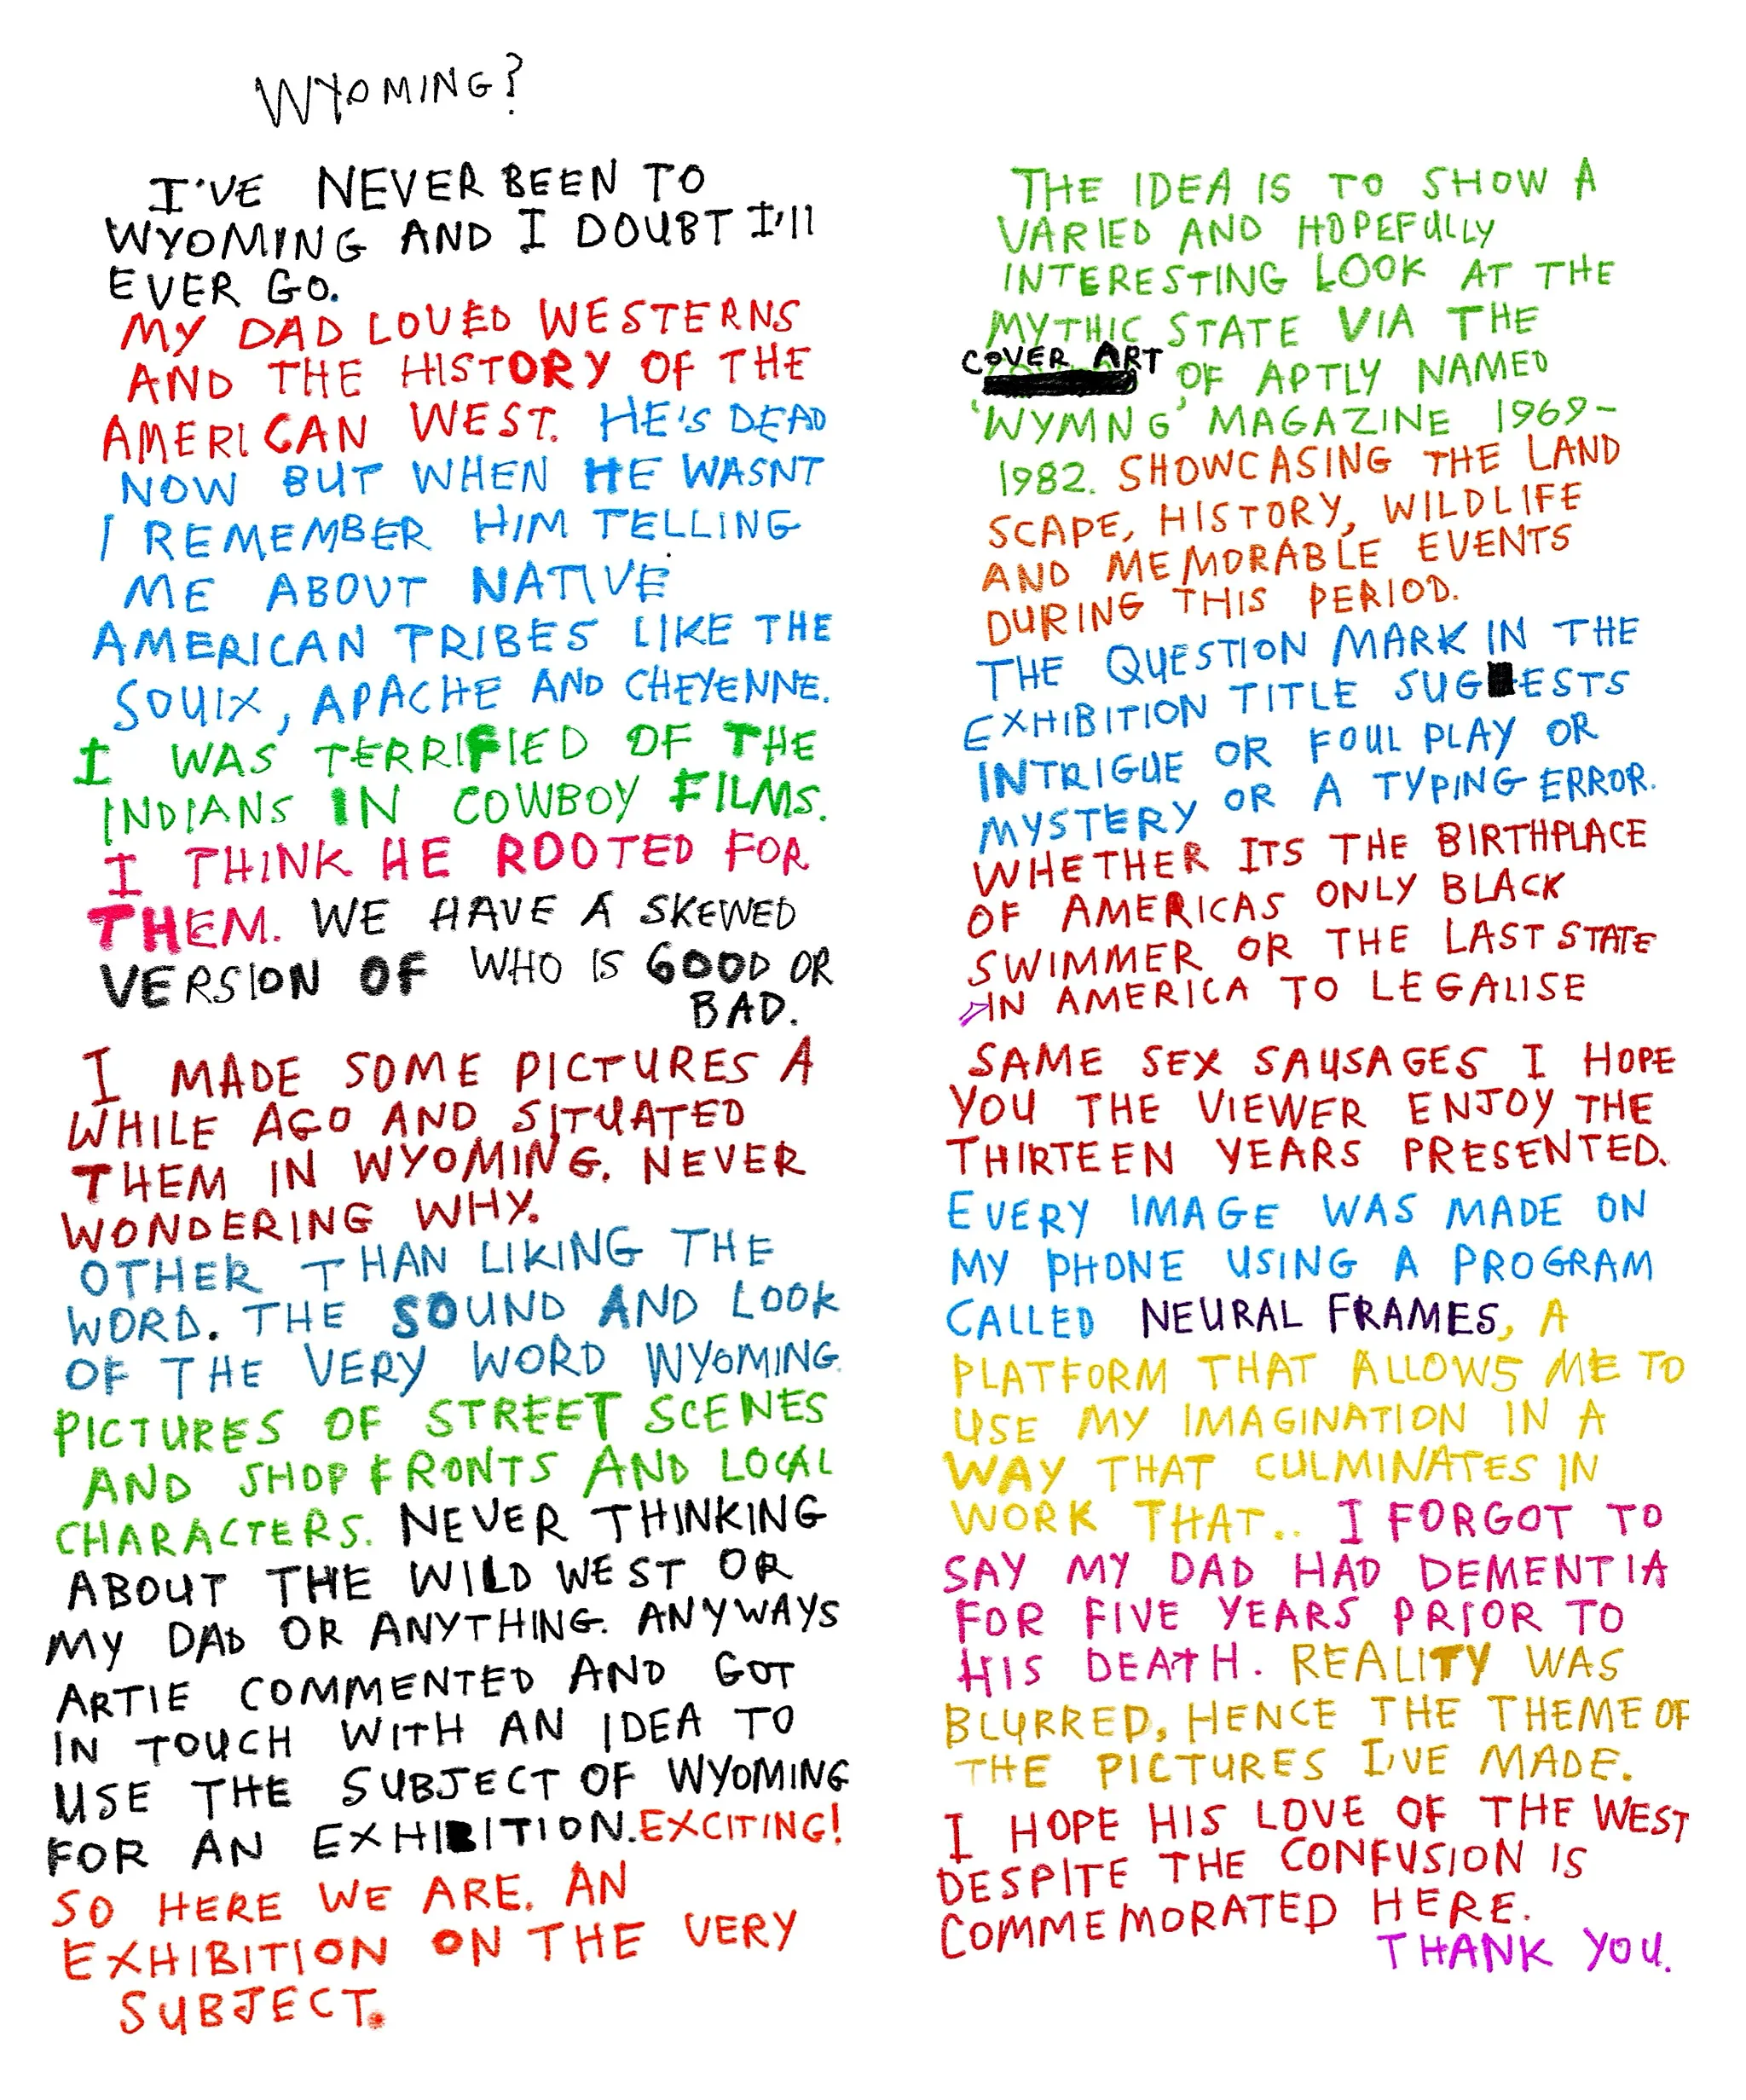 WYOMING?
I'VE NEVER BEEN TO
WYOMING AND I DOUBT I'll
EVER GO.
MY DAD LOVED WESTERNS
AND THE HISTORY OF THE
AMERICAN WEST. HE'S DEAD
NOW BUT WHEN HE WASNT
I REMEMBER HIM TELLING
ME ABOUT NATIVE
AMERICAN TRIBES LIKE THE
SOUIX, APACHE AND CHEYENNE.
I WAS TERRIFIED OF THE
INDIANS IN COWBOY FILMS.
I THINK HE ROOTED FOR
THEM. WE HAVE A SKEWED
VERSION OF WHO IS GOOD OR
BAD.
I MADE SOME PICTURES A
WHILE AGO AND SITUATED
THEM IN WYOMING. NEVER
WONDERING WHY.
OTHER THAN LIKING THE
WORD. THE SOUND AND LOOK
OF THE VERY WORD WYOMING.
PICTURES OF STREET SCENES
AND SHOP FRONTS AND LOCAL
CHARACTERS. NEVER THINKING
ABOUT THE WILD WEST OR
MY DAD OR ANYTHING. ANYWAYS
ARTIE COMMENTED AND GOT
IN TOUCH WITH AN IDEA TO
USE THE SUBJECT OF WYOMING
FOR AN EXHIBITION. EXCITING!
SO HERE WE ARE. AN
EXHIBITION ON THE VERY
SUBJECT.
THE IDEA IS TO SHOW A
VARIED AND HOPEFULLY
INTERESTING LOOK AT THE
MYTHIC STATE VIA THE
COVER ART OF APTLY NAMED
'WYMNG' MAGAZINE 1969-
1982. SHOWCASING THE LAND
SCAPE, HISTORY, WILDLIFE
AND MEMORABLE EVENTS
DURING THIS PERIOD.
THE QUESTION MARK IN THE
EXHIBITION TITLE SUGGESTS
INTRIGUE OR FOUL PLAY OR
MYSTERY OR A TYPING ERROR.
WHETHER ITS THE BIRTHPLACE
OF AMERICAS ONLY BLACK
SWIMMER OR THE LAST STATE
IN AMERICA TO LEGALISE
SAME SEX SAUSAGES I HOPE
YOU THE VIEWER ENJOY THE
THIRTEEN YEARS PRESENTED.
EVERY IMAGE WAS MADE ON
MY PHONE USING A PROGRAM
CALLED NEURAL FRAMES, A
PLATFORM THAT ALLOWS ME TO
USE MY IMAGINATION IN A
WAY THAT CULMINATES IN
WORK THAT.. I FORGOT TO
SAY MY DAD HAD DEMENTIA
FOR FIVE YEARS PRIOR TO
HIS DEATH. REALITY WAS
BLURRED, HENCE THE THEME OF
THE PICTURES I'VE MADE.
I HOPE HIS LOVE OF THE WEST
DESPITE THE CONFUSION IS
COMMEMORATED HERE.
THANK YOU.